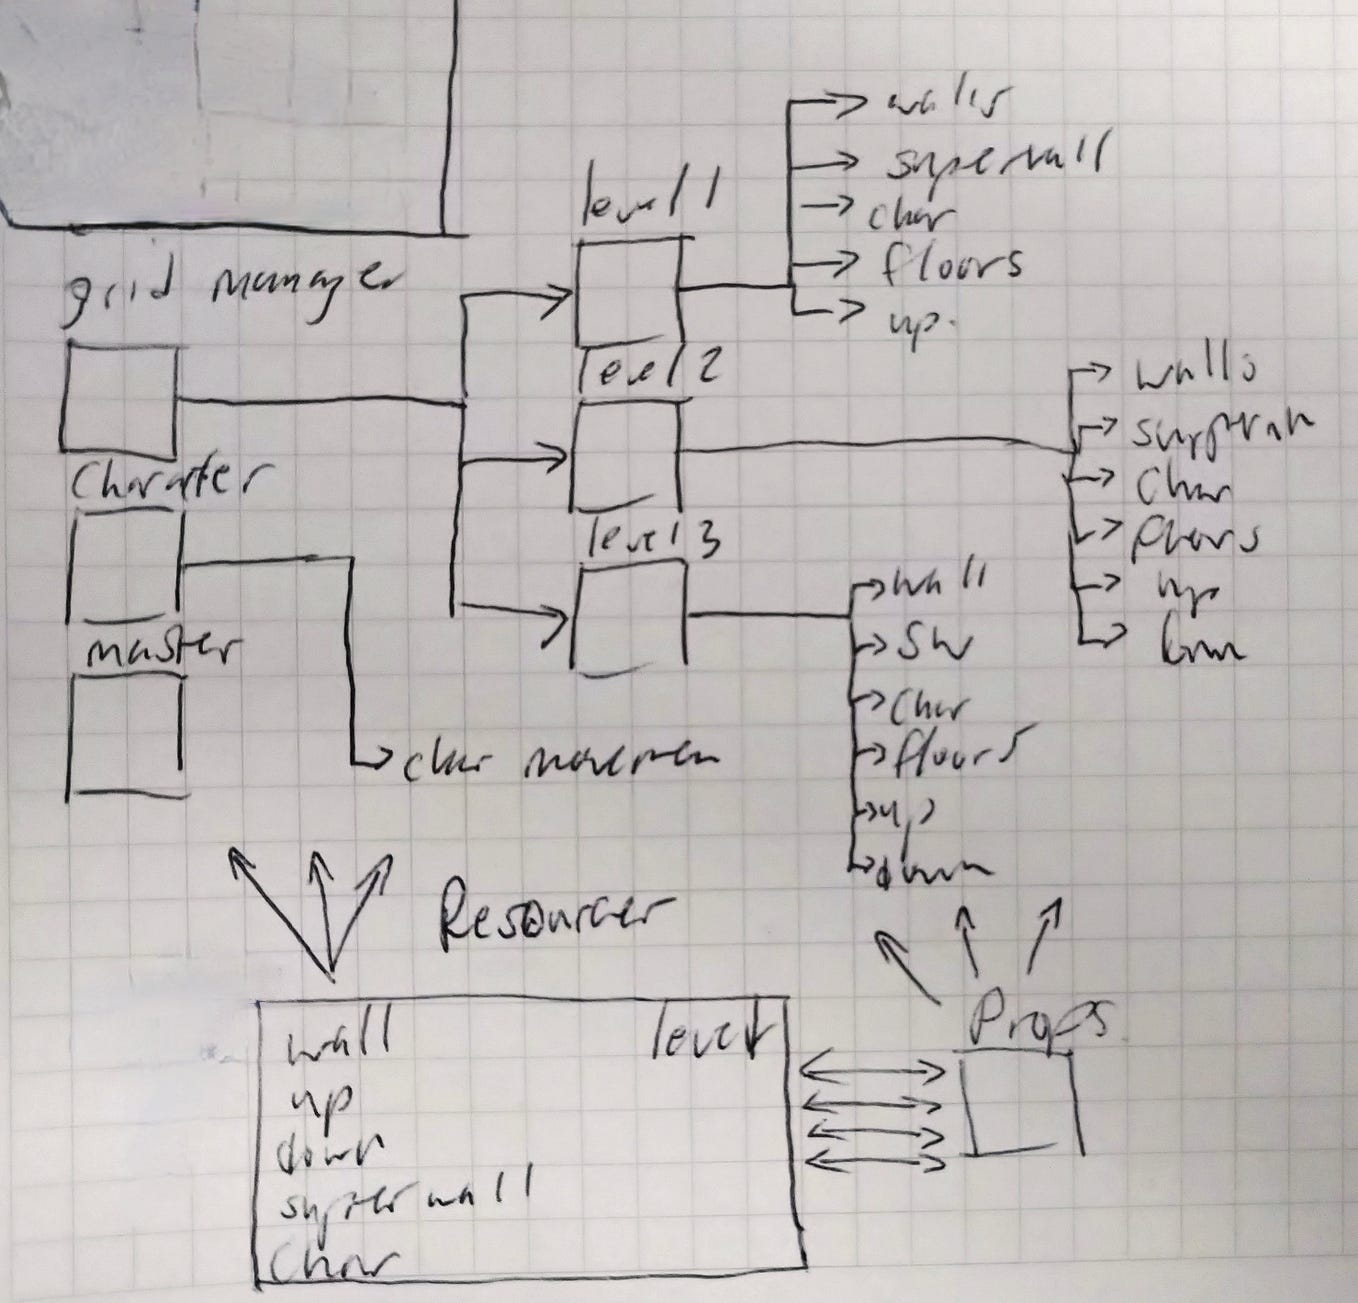 grid manager
Character
master
char movemen
level 1
level 2
level 3
walls
superwall
char
floors
up.
walls
char
floors
up
wall
SW
char
floors
up
down
Resources
wall
up
down
superwall
char
level
Props